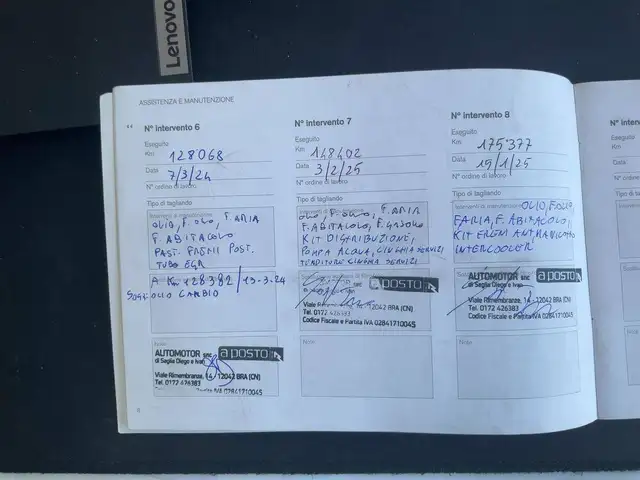 Lenovo
ASSISTENZA E MANUTENZIONE
N° intervento 6
Eseguito
Km 128068
Data 7/3/24
N° ordine di lavoro
Tipo di tagliando
OLIO, F. OLIO, F. ARIA
F. ABITACOLO
PAST. FRENI POST.
TUBO EGR
A Km 128382/13-3-24
SOST. OLIO CAMBIO
Note
AUTOMOTOR snc a POSTO
di Seglia Diego e Ivan
Viale Rimembranze, 14 - 12042 BRA (CN)
Tel. 0172 426383
Partita IVA 02841710045
6
N° intervento 7
Eseguito
Km 148402
Data 3/2/25
N° ordine di lavoro
Tipo di tagliando
OLIO, F. OLIO, F. ARIA
F. ABITACOLO, F. GASOLIO
KIT DISTRIBUZIONE,
POMPA ACQUA, CINGHIA SERVIZI
TENDITORE CINGHIA SERVIZI
snc a POSTO
Viale Rimembranze, 14 - 12042 BRA (CN)
Tel. 0172 426383
Codice Fiscale e Partita IVA 02841710045
Note
N° intervento 8
Eseguito
Km 175377
Data 15/1/25
N° ordine di lavoro
Tipo di tagliando
Interventi di manutenzione OLIO, F. OLIO,
F. ARIA, F. ABITACOLO,
INTERCOOLER
AUTOMOTOR snc a POSTO
di Seglia Diego e Ivan
Viale Rimembranze, 14 - 12042 BRA (CN)
Tel. 0172 426383
Codice Fiscale e Partita IVA 02841710045
Note
N° inter
Eseguito
Km
Data
N° ordine
Tipo di ta